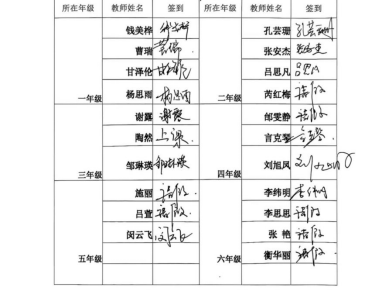 所在年级 教师姓名 签到 所在年级 教师姓名 签到
钱美桦 孔芸珊 孔芸珊
曹瑞 曹瑞 张安杰
甘泽伦 甘泽伦 吕思凡 吕思凡
一年级 杨思雨 杨思雨 二年级 芮红梅 请假
谢露 谢露 邰雯静 请假
陶然 上课 言克琴 言克琴
三年级 邹琳瑛 邹琳瑛 四年级 刘旭凤
施丽 请假 李纬明 李纬明
吕萱 请假 李思思 请假
五年级 闵云飞 闵云飞 张艳 请假
六年级 衡华丽 请假